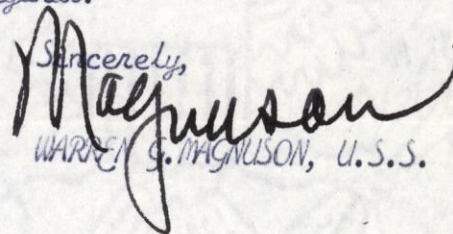 Sincerely,
Magnuson
WARREN G. MAGNUSON, U.S.S.